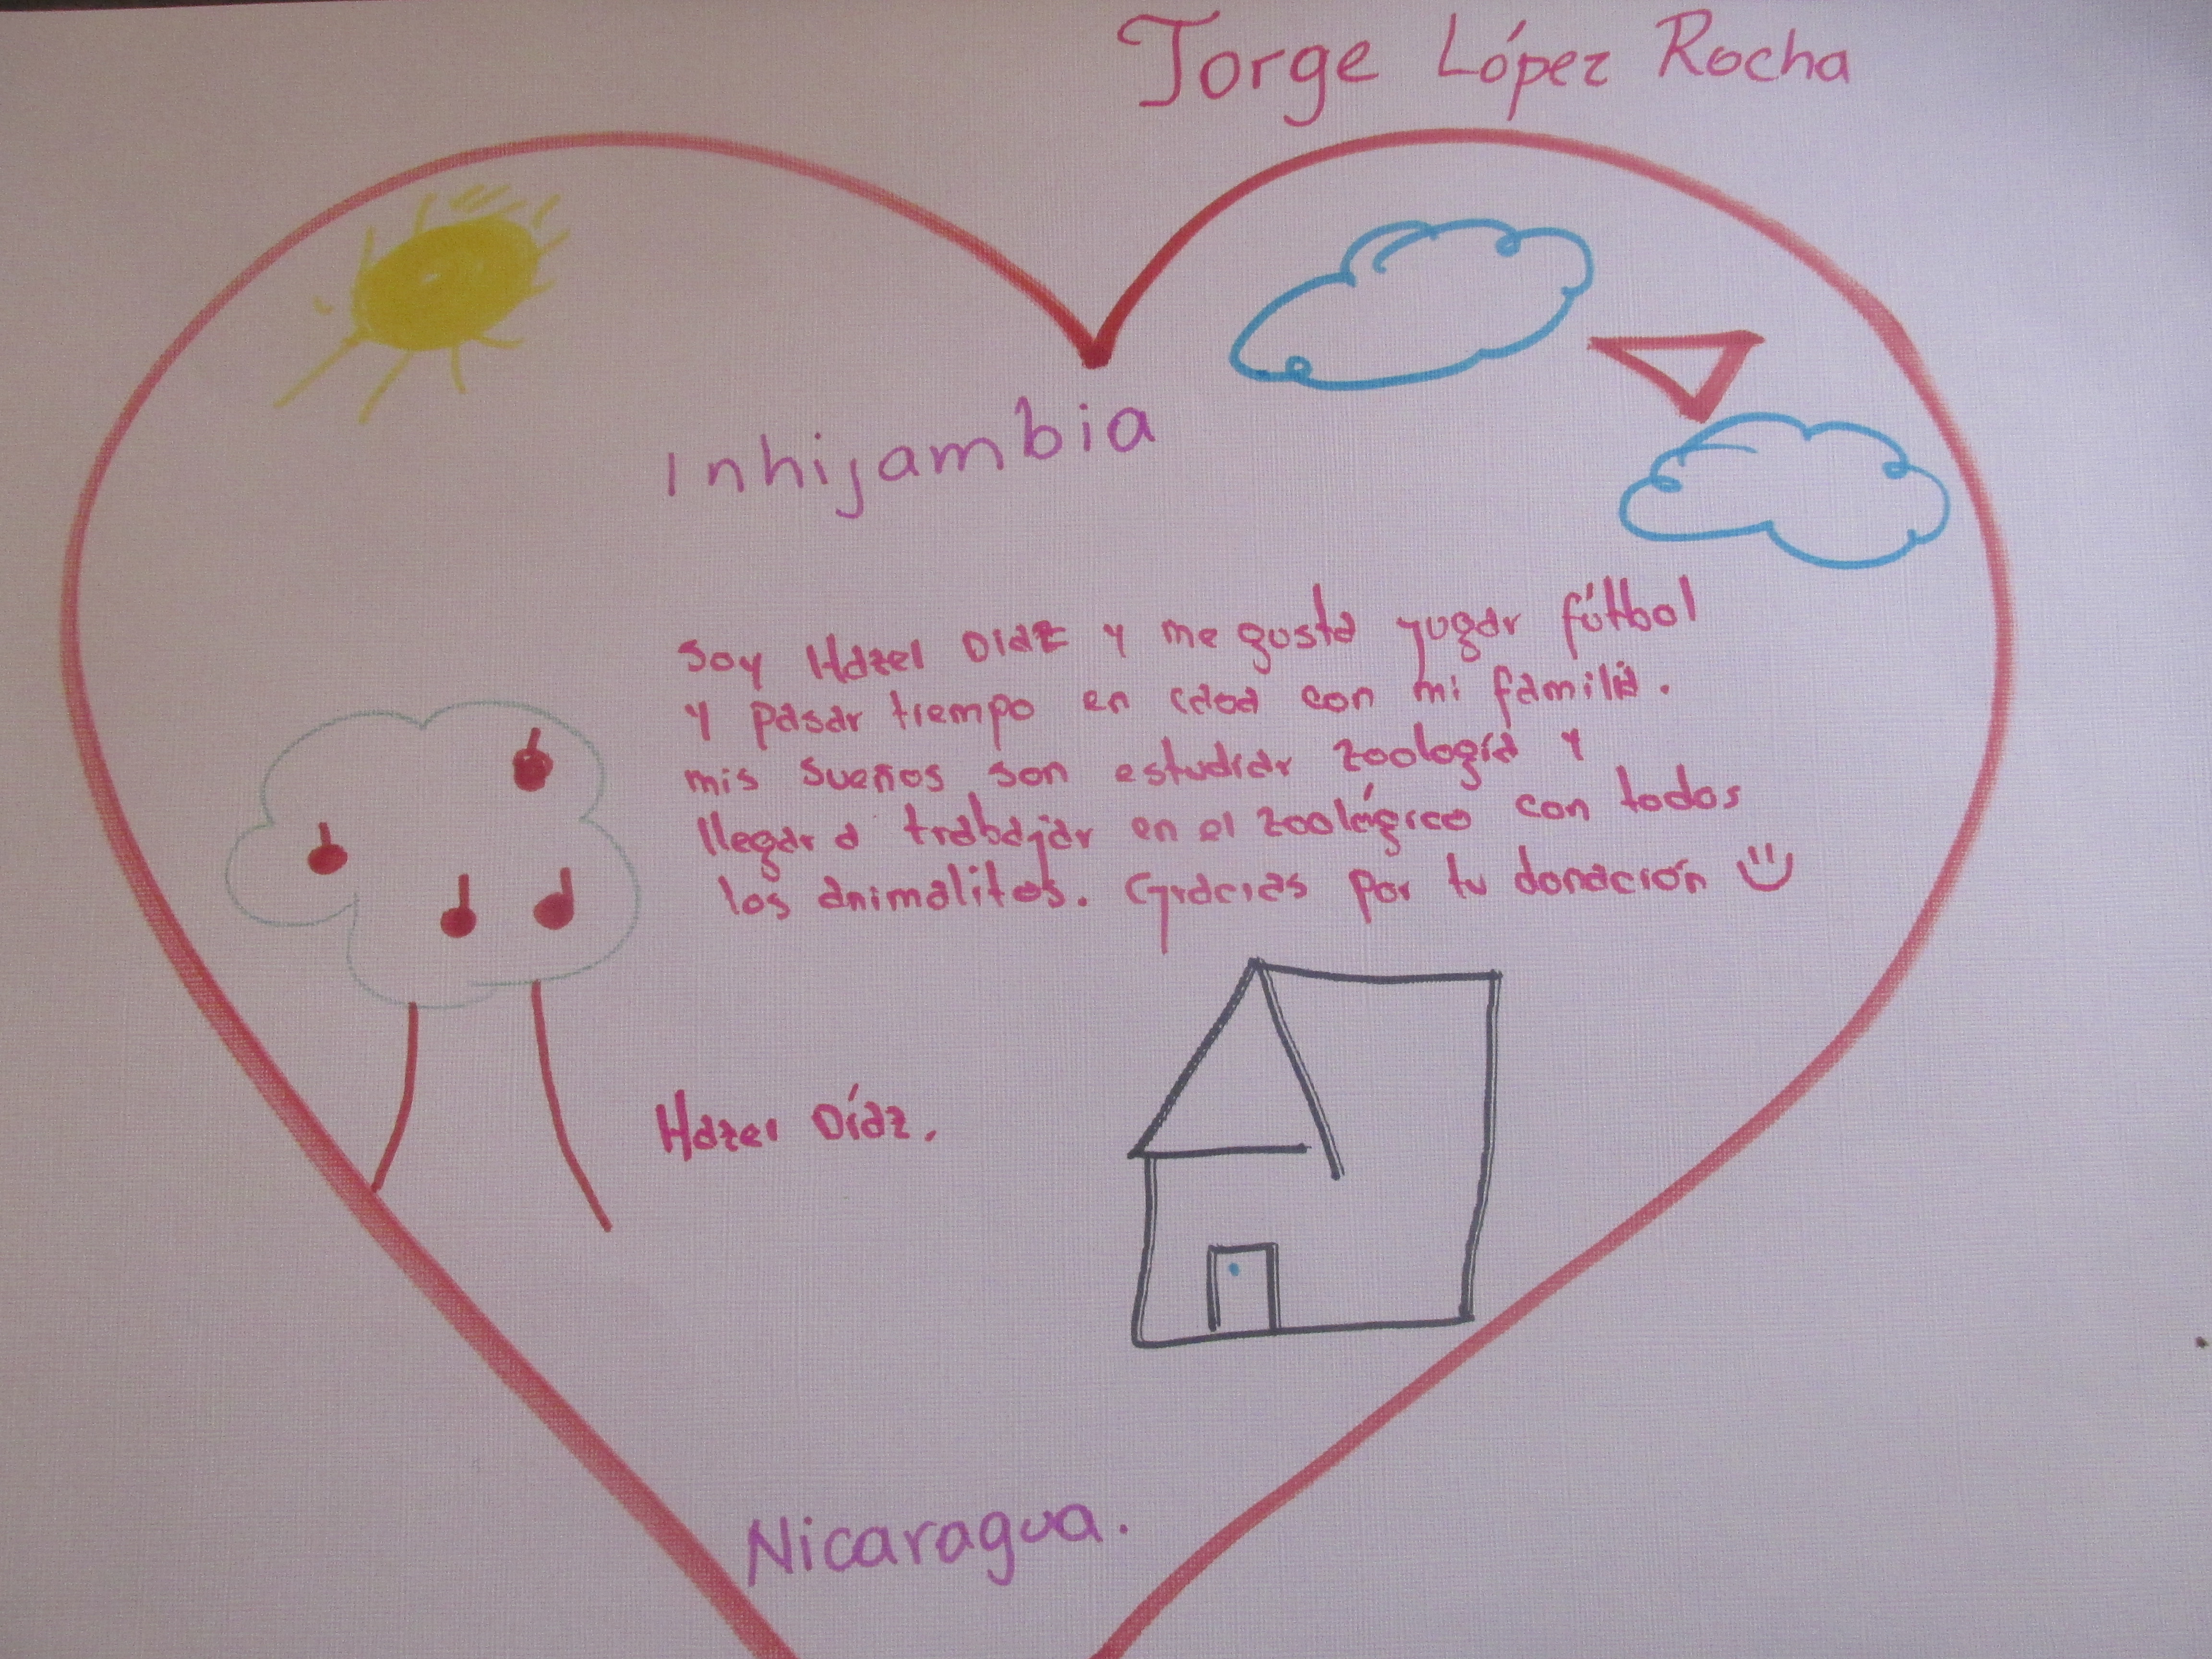 Jorge López Rocha
Inhijambia
Soy Hazel Diaz y me gusta yugar fútbol
y pasar tiempo en casa con mi familia.
mis sueños son estudiar zoología y
llegar a trabajar en el zoológico con todos
los animalitos. Gracias por tu donación
Hazel Díaz.
Nicaragua.